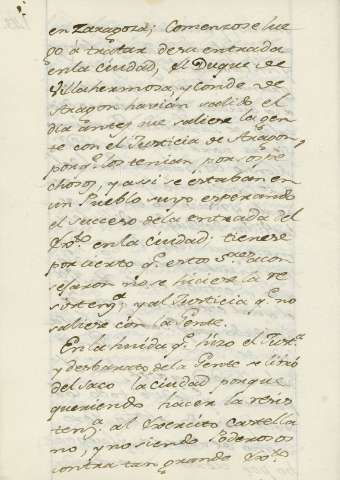 en Zaragoza; Comenzose lue
go á tratar de su entrada
en la ciudad, el Duque de
Villahermosa, y Conde de
Aragon havian salido el
dia antes que saliese la gen
te con el Justicia de Aragon,
porq.e los tenian por sospe
chosos, y assi se estaban en
un Pueblo suyo esperando
el successo de la entrada del
Ex.to en la ciudad; tienese
por cierto q.e estos S.res acon
sejaron no se hiciese la re
sisten.a y al Justicia q.e no
saliese con la Gente.
En la huida q.e hizo el Just.a
y desbarato de la Gente se libró
del saco la ciudad porque
queriendo hacer la resis
ten.a al Exercito Castella
no, y no siendo poderosos
contra tan grande Ex.to